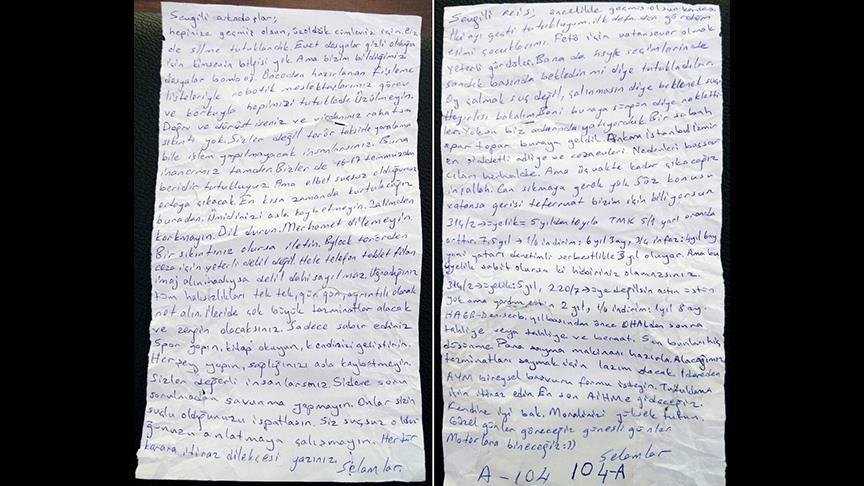 Sevgili arkadaşlar;
hepinize geçmiş olsun, üzüldük cümleniz için. Biz
de silme tutuklandık. Evet dosyalar gizli olduğu
için kimsenin bilgisi yok. Ama bizim bildiğimiz
dosyalar bomboş. Önceden hazırlanan fişleme
listeleriyle robotik meslektaşlarımız görev
ve korkuyla hepimizi tutukladı. Üzülmeyin.
Doğru ve dürüst iseniz ve vicdanınız rahatsa
sıkıntı yok. Sizler değil terör taksirle yaralama
bile işlem yapılmayacak insanlarsınız. Buna
inancımız tamdır. Bizler de 16-17 temmuzdan
beridir tutukluyuz. Ama elbet suçsuz olduğunuz
ortaya çıkacak. En kısa zamanda kurtulacağız
buradan. Ümidinizi asla kaybetmeyin. Zalimden
korkmayın. Dik durun. Merhamet dilemeyin.
Bir sıkıntınız olursa iletin. Bylock terörden
ceza için yeterli delil değil. Hele telefon tablet filan
imaj alınmadıysa delil dahi sayılmaz. Uğradığınız
tüm haksızlıkları tek tek, gün gün, ayrıntılı olarak
not alın. İleride çok büyük tazminatlar alacak
ve zengin olacaksınız. Sadece sabır ediniz
Spor yapın, kitap okuyun, kendinizi geliştirin.
Herşey yapın, sağlığınızı asla kaybetmeyin.
Sizler değerli insanlarsınız. Sizlere soru
sorulmadan savunma yapmayın. Onlar sizin
suçlu olduğunuzu ispatlasın. Siz suçsuz oldu-
ğunuzu anlatmaya çalışmayın. Her tür
karara itiraz dilekçesi yazınız.
Selamlar.
Sevgili reis; öncelikle geçmiş olsun
İki ayı geçti tutukluyum. ilk defa dün gördüm
eşimi çocuklarımı. Fetö için vatansever olmak
yeterli gördüler. Bana da hsyk seçimlerinde
sandık başında bekledin mi diye tutukladılar.
Oy çalmak suç değil, çalınmasın diye beklemek suç.
Hayırlısı bakalım. Beni buraya sürgün diye naklettiler.
Yoksa biz adanada yatıyorduk. Bir sabah
apar topar buraya geldik. Ankara istanbul izmir
en şiddetli adliye ve cezaevleri. Nedenleri başsav-
cıları herhalde. Ama üç vakte kadar çıkacağız
inşallah. Can sıkmaya gerek yok. Söz konusu
vatansa gerisi teferruat bizim için biliyorsun
314/2 → üyelik = 5 yıldan 10 yıla TMK 5/1 yarı oranda
arttır. 7,5 yıl → 1/6 indirim: 6 yıl 3 ay, 3/4 infaz: 4 yıl 8 ay
yani yatarı denetimli serbestlikle 3 yıl oluyor. Ama bu
üyelik sabit olursa ki hiçbiriniz olamazsınız.
314/2 → üyelik: 5 yıl, 220/7 → üye değilsin astın üstün
yok ama yardım ettin 2 yıl, 1/6 indirim: 1 yıl 8 ay.
HAGB-Den.serb. yılbaşından önce OHALden sonra
tahliye veya tahliye ve beraat. Sen bunları hiç
düşünme. Para sayma makinası hazırla. Alacağımız
tazminatları saymak için lazım olacak. İdareden
AYM bireysel başvuru formu isteyin. Tutuklama
için itiraz edin. En son AİHMe gideceğiz.
Kendine iyi bak. Moralinizi yüksek tutun.
Güzel günler göreceğiz güneşli günler
Motorlara bineceğiz :))
Selamlar
A-104 104-A